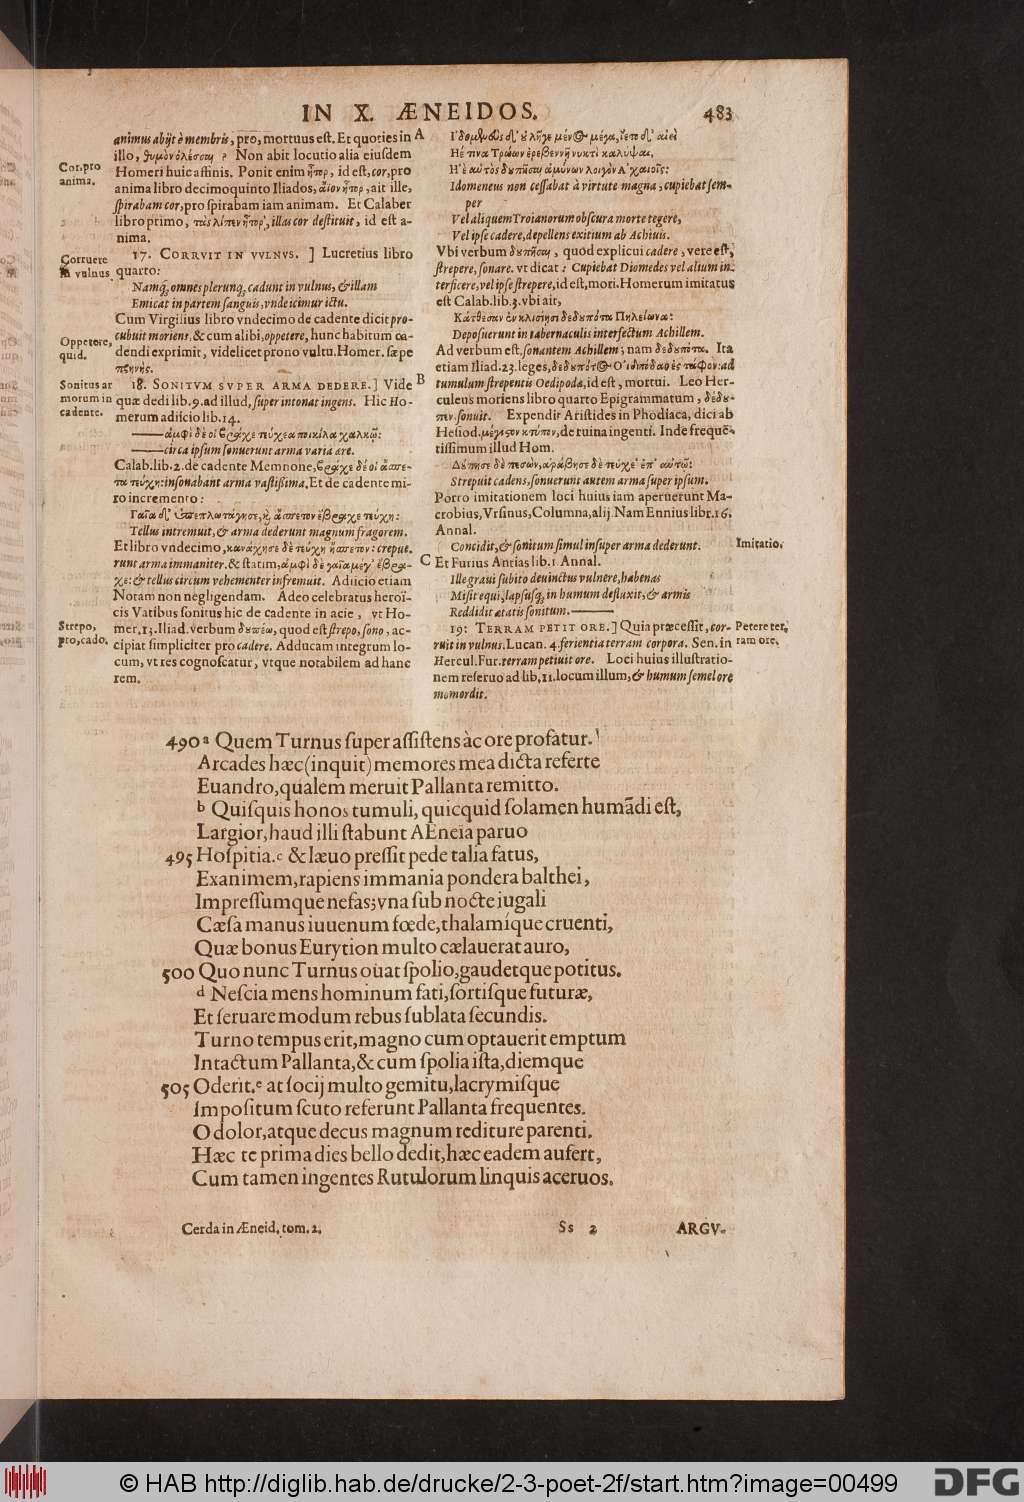 IN X. ÆNEIDOS. 483
animus abijt è membris, pro, mortuus est. Et quoties in
illo, θυμὸν ὀλέσσαι ? Non abit locutio alia eiusdem
Homeri huic affinis. Ponit enim ἦτορ, id est, cor, pro
anima libro decimoquinto Iliados, ἄϊον ἦτορ, ait ille,
spirabam cor, pro spirabam iam animam. Et Calaber
libro primo, τὰς λίπεν ἦτορ, illas cor destituit, id est a-
nima.
17. CORRVIT IN VVLNVS. ] Lucretius libro
quarto:
Namq́; omnes plerunq́; cadunt in vulnus, & illam
Emicat in partem sanguis, vnde icimur ictu.
Cum Virgilius libro vndecimo de cadente dicit pro-
cubuit moriens, & cum alibi, oppetere, hunc habitum ca-
dendi exprimit, videlicet prono vultu. Homer. sæpe
πρηνής.
18. SONITVM SVPER ARMA DEDERE. ] Vide
quæ dedi lib. 9. ad illud, super intonat ingens. Hic Ho-
merum adiicio lib. 14.
——ἀμφὶ δὲ οἱ βράχε τεύχεα ποικίλα χαλκῷ:
——circa ipsum sonuerunt arma varia ære.
Calab. lib. 2. de cadente Memnone, βράχε δέ οἱ ἄσπε-
τα τεύχη: insonabant arma vastissima. Et de cadente mi-
ro incremento:
Γαῖα δ' ὑπεπλατάγησε, καὶ ἄσπετον ἔβραχε τεύχη:
Tellus intremuit, & arma dederunt magnum fragorem.
Et libro vndecimo, κανάχησε δὲ τεύχη ἄσπετον: crepue-
runt arma immaniter. & statim, ἀμφὶ δὲ γαῖα μέγ' ἔβρα-
χε: & tellus circum vehementer infremuit. Adiicio etiam
Notam non negligendam. Adeo celebratus heroï-
cis Vatibus sonitus hic de cadente in acie, vt Ho-
mer. 13. Iliad. verbum δουπέω, quod est strepo, sono, ac-
cipiat simpliciter pro cadere. Adducam integrum lo-
cum, vt res cognoscatur, vtque notabilem ad hanc
rem.
Cor, pro
anima.
Corruere
in vulnus
Oppetere,
quid.
Sonitus ar
morum in
cadente.
Strepo,
pro, cado.
A
B
C
Ἰδομενεὺς δ' οὐ λῆγε μένος μέγα, ἵετο δ' αἰεὶ
Ἠέ τινα Τρώων ἐρεβεννῇ νυκτὶ καλύψαι,
Ἢ ἐ αὐτὸς δουπῆσαι ἀμύνων λοιγὸν Ἀχαιοῖς:
Idomeneus non cessabat à virtute magna, cupiebat sem-
per
Vel aliquem Troianorum obscura morte tegere,
Vel ipse cadere, depellens exitium ab Achiuis.
Vbi verbum δουπῆσαι, quod explicui cadere, vere est,
strepere, sonare. vt dicat: Cupiebat Diomedes vel alium in-
terficere, vel ipse strepere, id est, mori. Homerum imitatus
est Calab. lib. 3. vbi ait,
Κάτθεσαν ἐν κλισίῃσι δεδουπότα Πηλείωνα:
Deposuerunt in tabernaculis interfectum Achillem.
Ad verbum est, sonantem Achillem; nam δεδουπότα. Ita
etiam Iliad. 23. leges, δεδουπότος Οἰδιπόδαο ἐς τάφον: ad
tumulum strepentis Oedipodæ, id est, mortui. Leo Her-
culeus moriens libro quarto Epigrammatum, δέδου-
πεν. sonuit. Expendit Aristides in Phodiaca, dici ab
Hesiod. μέγιστον κτύπον, de ruina ingenti. Inde frequē-
tissimum illud Hom.
Δούπησε δὲ πεσών, ἀράβησε δὲ τεύχε' ἐπ' αὐτῷ:
Strepuit cadens, sonuerunt autem arma super ipsum.
Porro imitationem loci huius iam aperuerunt Ma-
crobius, Vrsinus, Columna, alij. Nam Ennius libr. 16.
Annal.
Concidit, & sonitum simul insuper arma dederunt.
Et Furius Antias lib. 1. Annal.
Ille graui subito deuinctus vulnere, habenas
Misit equi, lapsusq́; in humum defluxit, & armis
Reddidit æratis sonitum.——
19. TERRAM PETIT ORE. ] Quia præcessit, cor-
ruit in vulnus. Lucan. 4. ferientia terram corpora. Sen. in
Hercul. Fur. terram petiuit ore. Loci huius illustratio-
nem referuo ad lib. 11. locum illum, & humum semel ore
momordit.
Imitatio.
Petere ter,
ram ore.
490 a Quem Turnus super assistens àc ore profatur.
Arcades hæc (inquit) memores mea dicta referte
Euandro, qualem meruit Pallanta remitto.
b Quisquis honos tumuli, quicquid solamen humādi est,
Largior, haud illi stabunt AEneïa paruo
495 Hospitia. c & læuo pressit pede talia fatus,
Exanimem, rapiens immania pondera balthei,
Impressumque nefas; vna sub nocte iugali
Cæsa manus iuuenum fœde, thalamíque cruenti,
Quæ bonus Eurytion multo cælauerat auro,
500 Quo nunc Turnus ouat spolio, gaudetque potitus.
d Nescia mens hominum fati, sortisque futuræ,
Et seruare modum rebus sublata secundis.
Turno tempus erit, magno cum optauerit emptum
Intactum Pallanta, & cum spolia ista, diemque
505 Oderit. e at socij multo gemitu, lacrymisque
Impositum scuto referunt Pallanta frequentes.
O dolor, atque decus magnum rediture parenti.
Hæc te prima dies bello dedit, hæc eadem aufert,
Cum tamen ingentes Rutulorum linquis aceruos.
Cerda in Æneid. tom. 2. Ss 2 ARGV-
© HAB http://diglib.hab.de/drucke/2-3-poet-2f/start.htm?image=00499
DFG